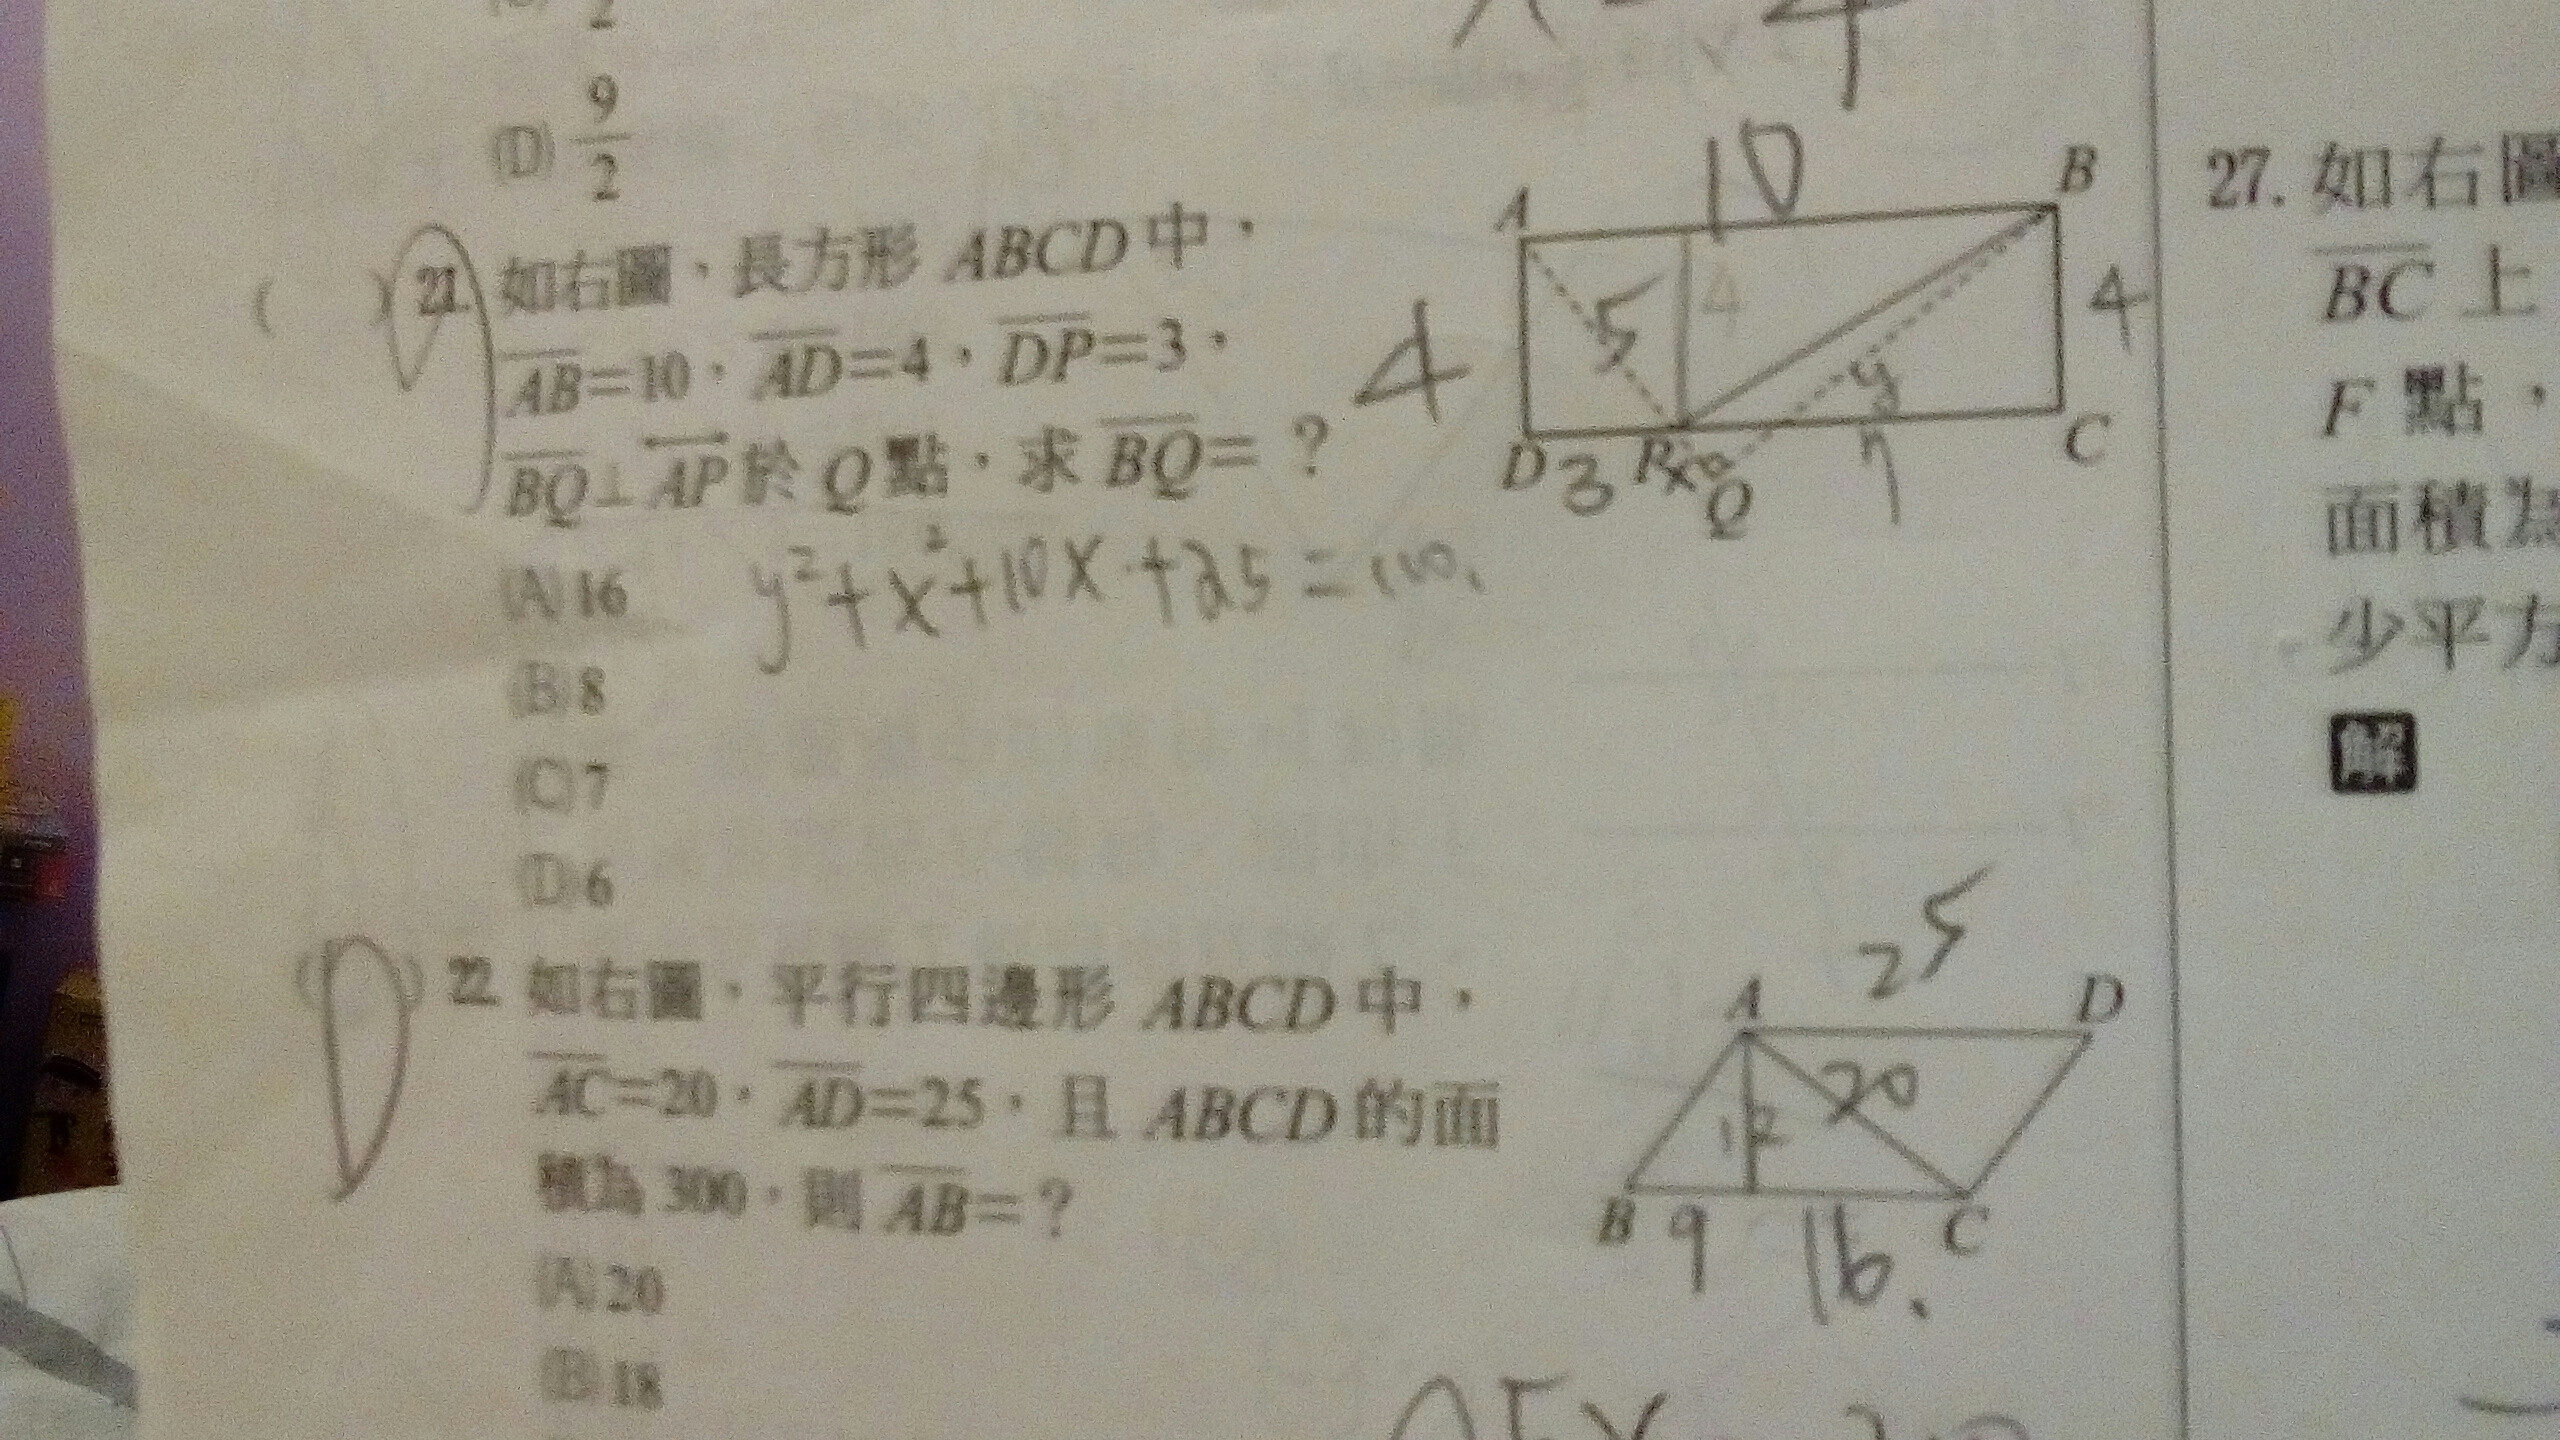 2
(D) 9/2
x = 4
( ) 21. 如右圖,長方形 ABCD 中,
AB=10,AD=4,DP=3,
BQ⊥AP 於 Q 點,求 BQ=?
(A) 16
(B) 8
(C) 7
(D) 6
y²+x²+10x+25=100.
A
B
C
D
P
Q
10
4
4
5
4
3
x
y
7
D
22. 如右圖,平行四邊形 ABCD 中,
AC=20,AD=25,且 ABCD 的面
積為 300,則 AB=?
(A) 20
(B) 18
25
A
D
20
12
B
9
16.
C
27. 如右圖
BC 上
F 點,
面積為
少平方
解